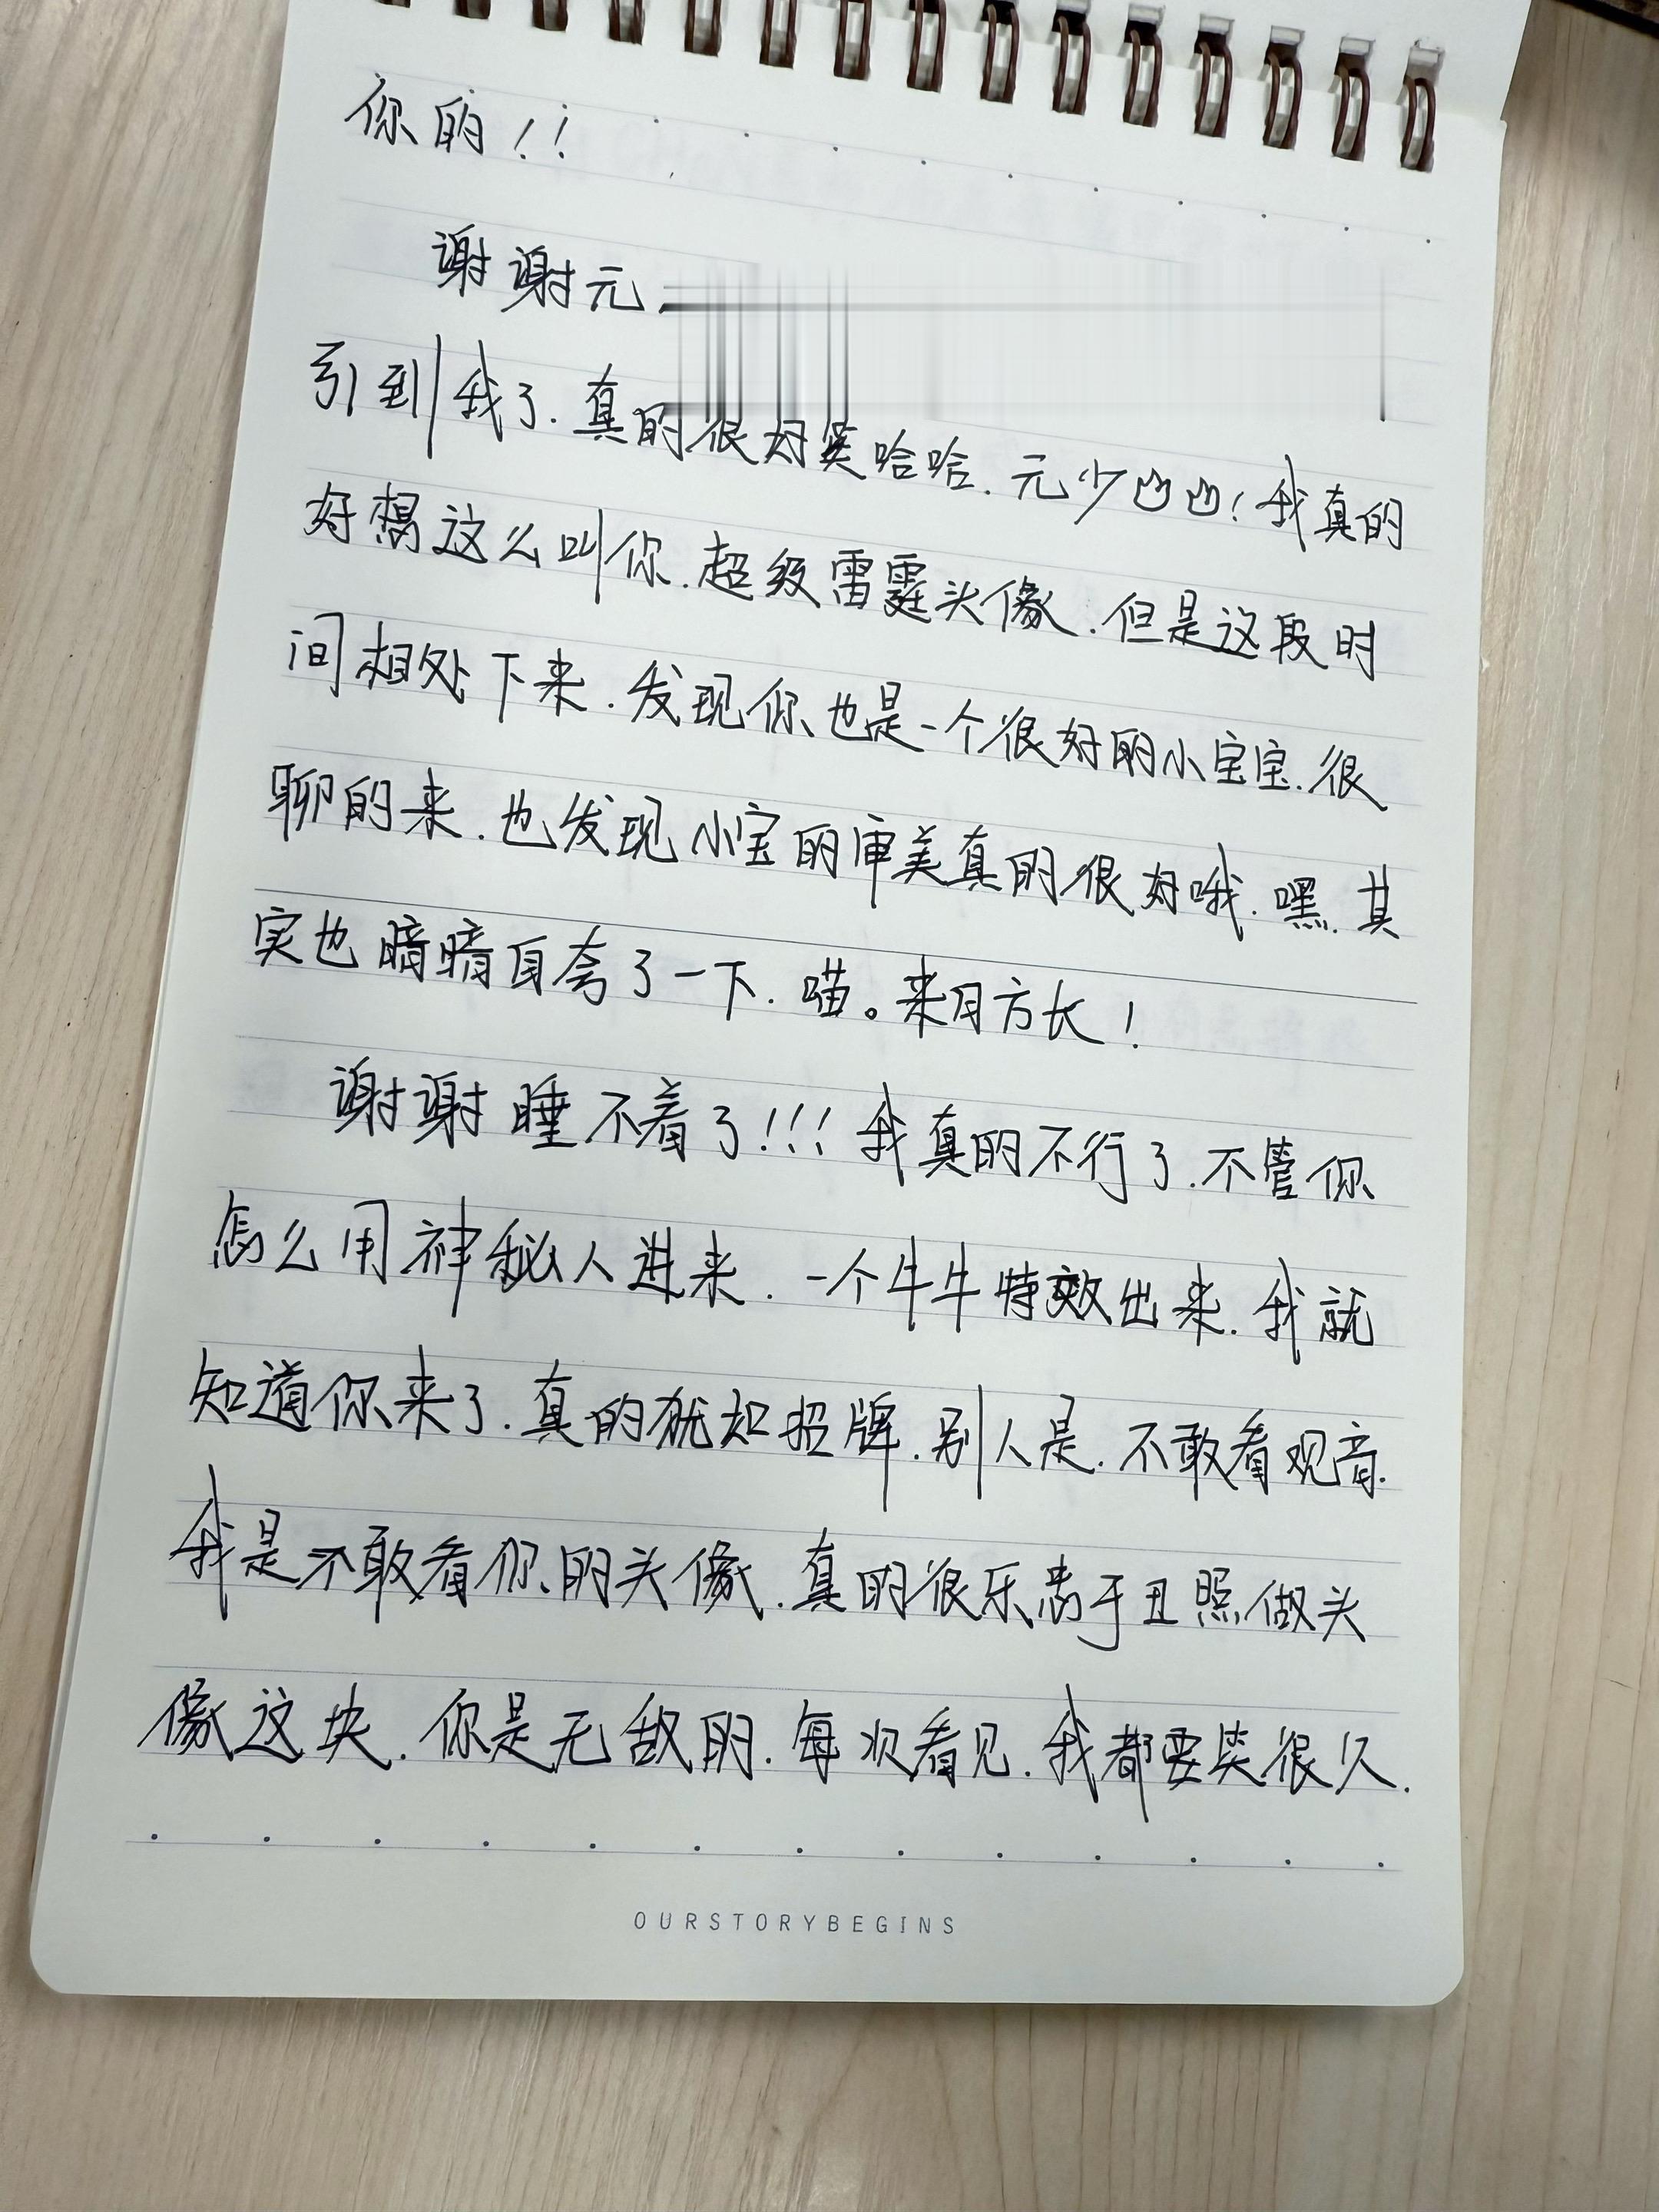 你的！！
谢谢元
引到我了.真的很好笑哈哈.元少凶凶！我真的
好想这么叫你.超级雷霆头像.但是这段时
间相处下来.发现你也是一个很好的小宝宝.很
聊的来.也发现小宝的审美真的很好哦.嘿.其
实也暗暗自夸了一下.喵。来日方长！
谢谢睡不着了！！！我真的不行了.不管你
怎么用神秘人进来.一个牛牛特效出来.我就
知道你来了.真的犹如招牌.别人是.不敢看观音.
我是不敢看你的头像.真的很乐忠于丑照做头
像这块.你是无敌的.每次看见.我都要笑很久.
OURSTORYBEGINS